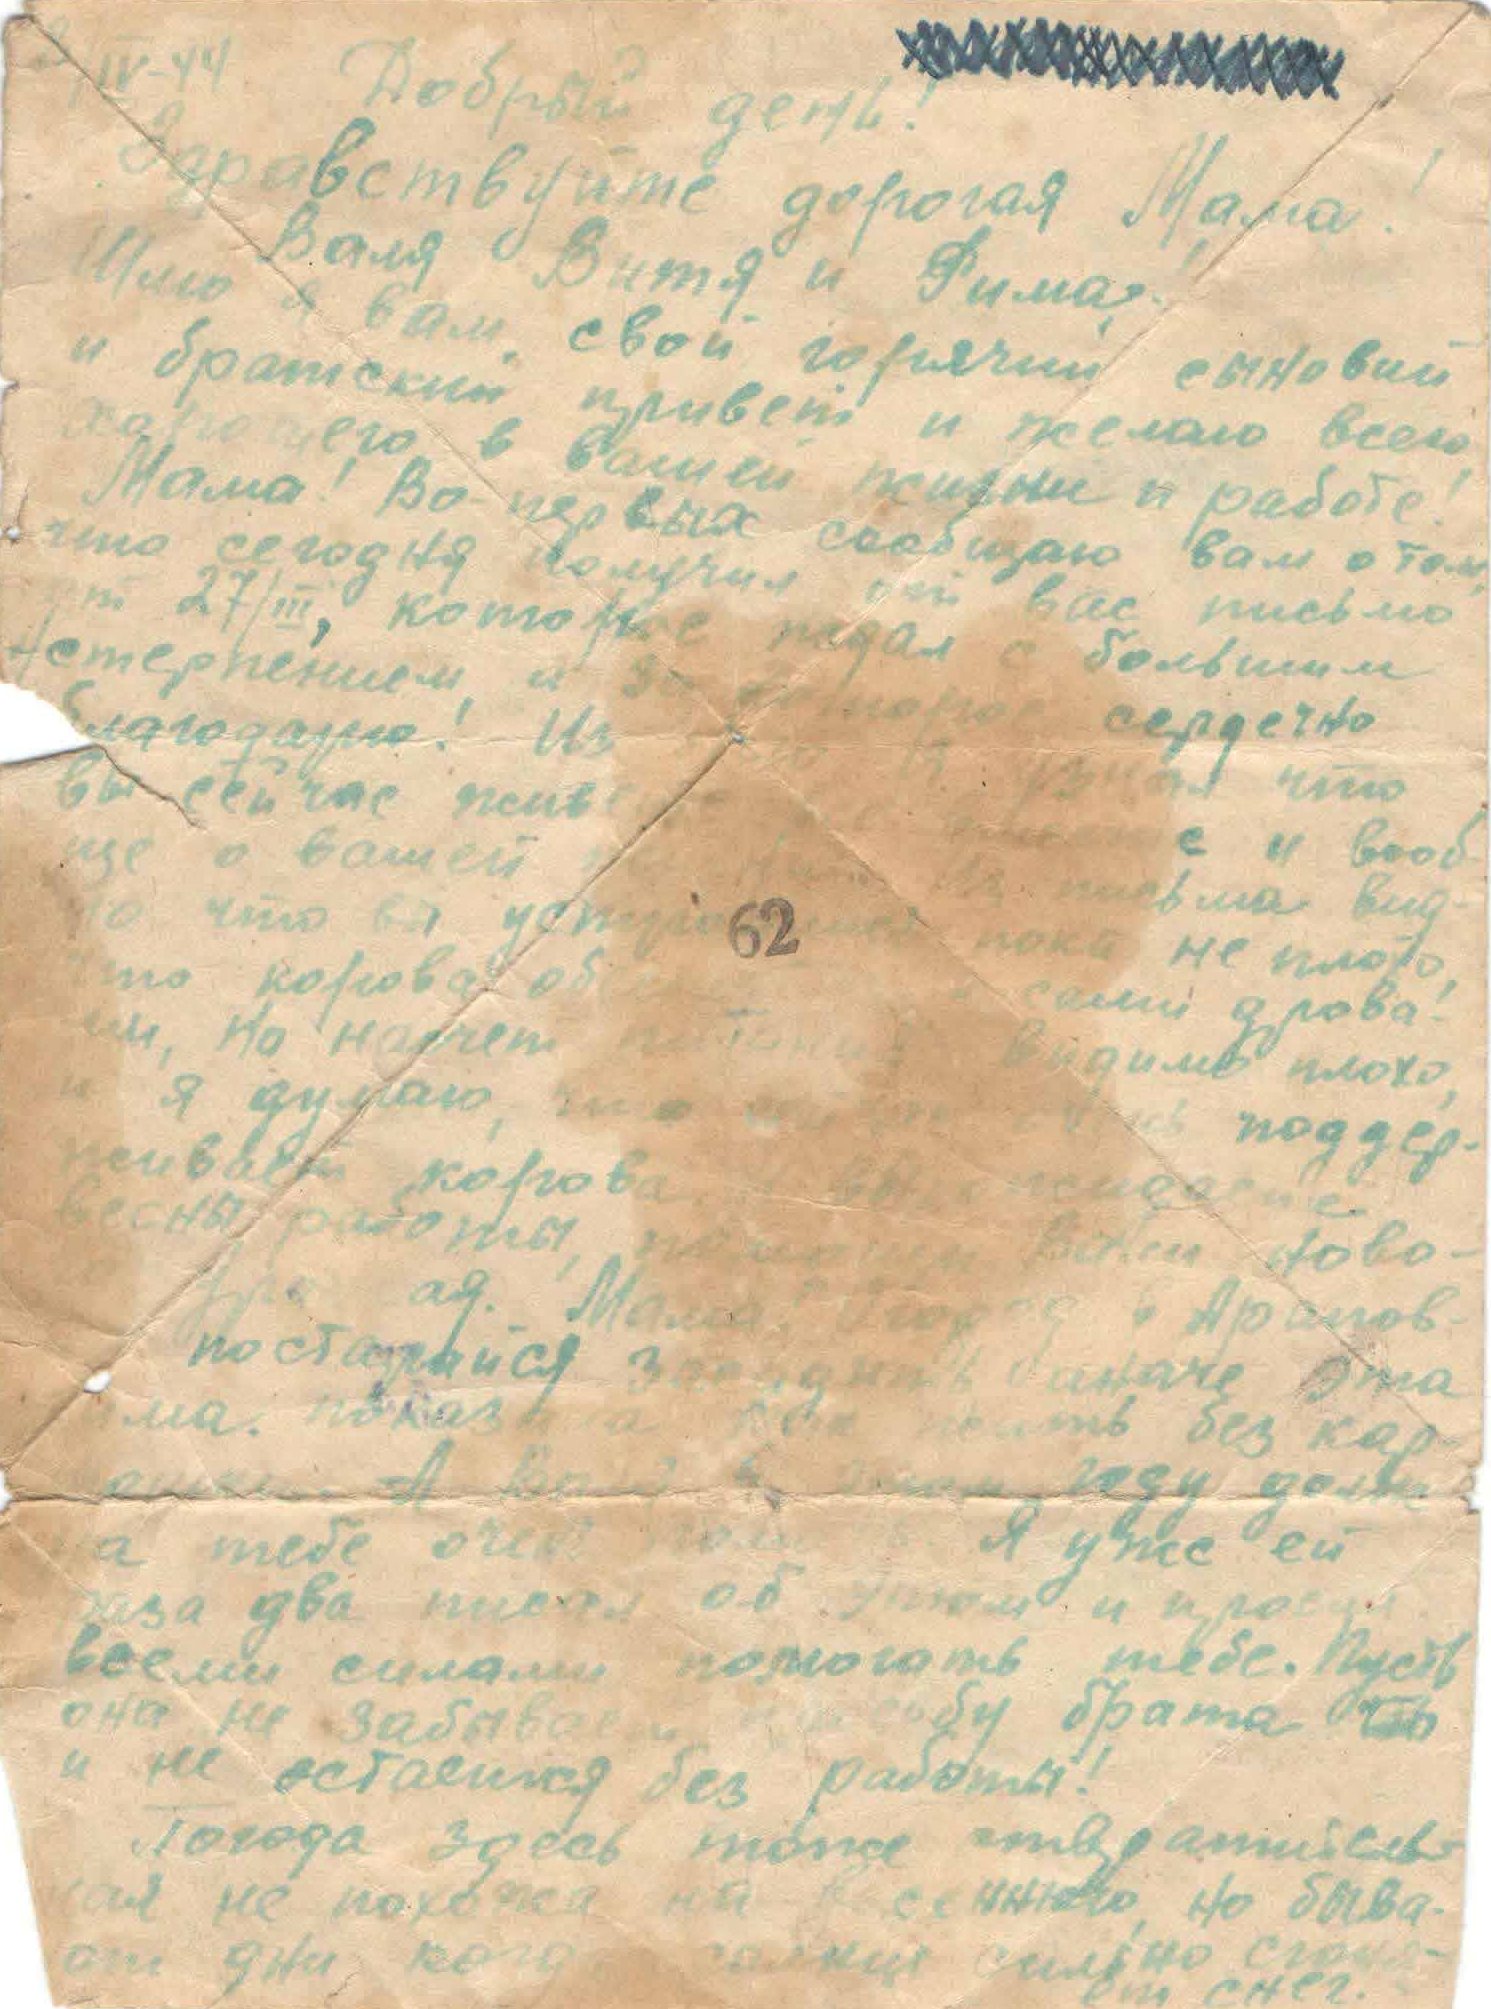 IV-44 Добрый день!
Здравствуйте дорогая Мама!
Валя Витя и Фима.
Шлю я вам свой горячий сыновий
и братский привет и желаю всего
харошего в вашей жизни и работе!
Мама! Во-первых сообщаю вам о том,
что сегодня получил от вас письмо
от 27/III, которое ждал с большим
нетерпением и за которое сердечно
благодарю! Из я узнал что
вы сейчас и вооб-
ще о вашей из письма вид-
но что вы пока не плохо,
что корова сами дрова-
ми, но насчет питания видимо плохо,
и я думаю, что поддер-
живает корова и вы ожидаете
весны работы, ново-
Мама! Огород в Арапов-
постарайся засадить иначе эта
зима показала как жить без кар-
А Валя в этом году долж-
на тебе очень помочь. Я уже ей
раза два писал об этом и просил
всеми силами помогать тебе. Пусть
она не забывает просьбу брата ты
и не остаешся без работы!
Погода здесь тоже отвратитель-
ная не похожа на весеннюю, но быва-
ют дни когда солнце сильно сгоня-
ет снег.
62